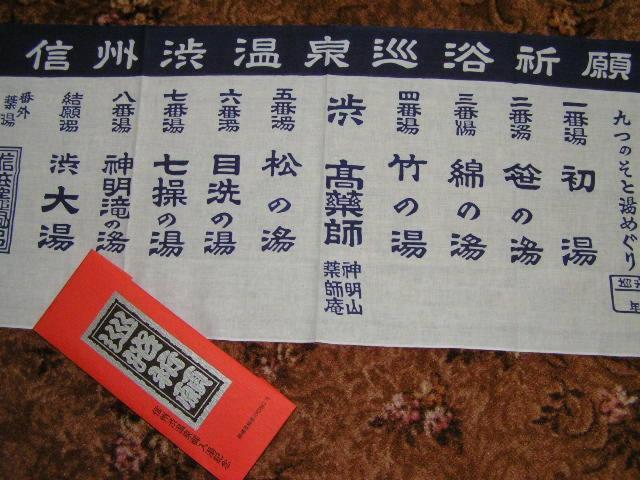 信州渋温泉巡浴祈願
九つのそと湯めぐり
一番湯 初湯
二番湯 笹の湯
三番湯 綿の湯
四番湯 竹の湯
渋 高薬師
神明山
薬師庵
五番湯 松の湯
六番湯 目洗の湯
七番湯 七操の湯
八番湯 神明滝の湯
結願湯 渋大湯
番外
薬湯
巡浴祈願
信州渋温泉御入湯記念